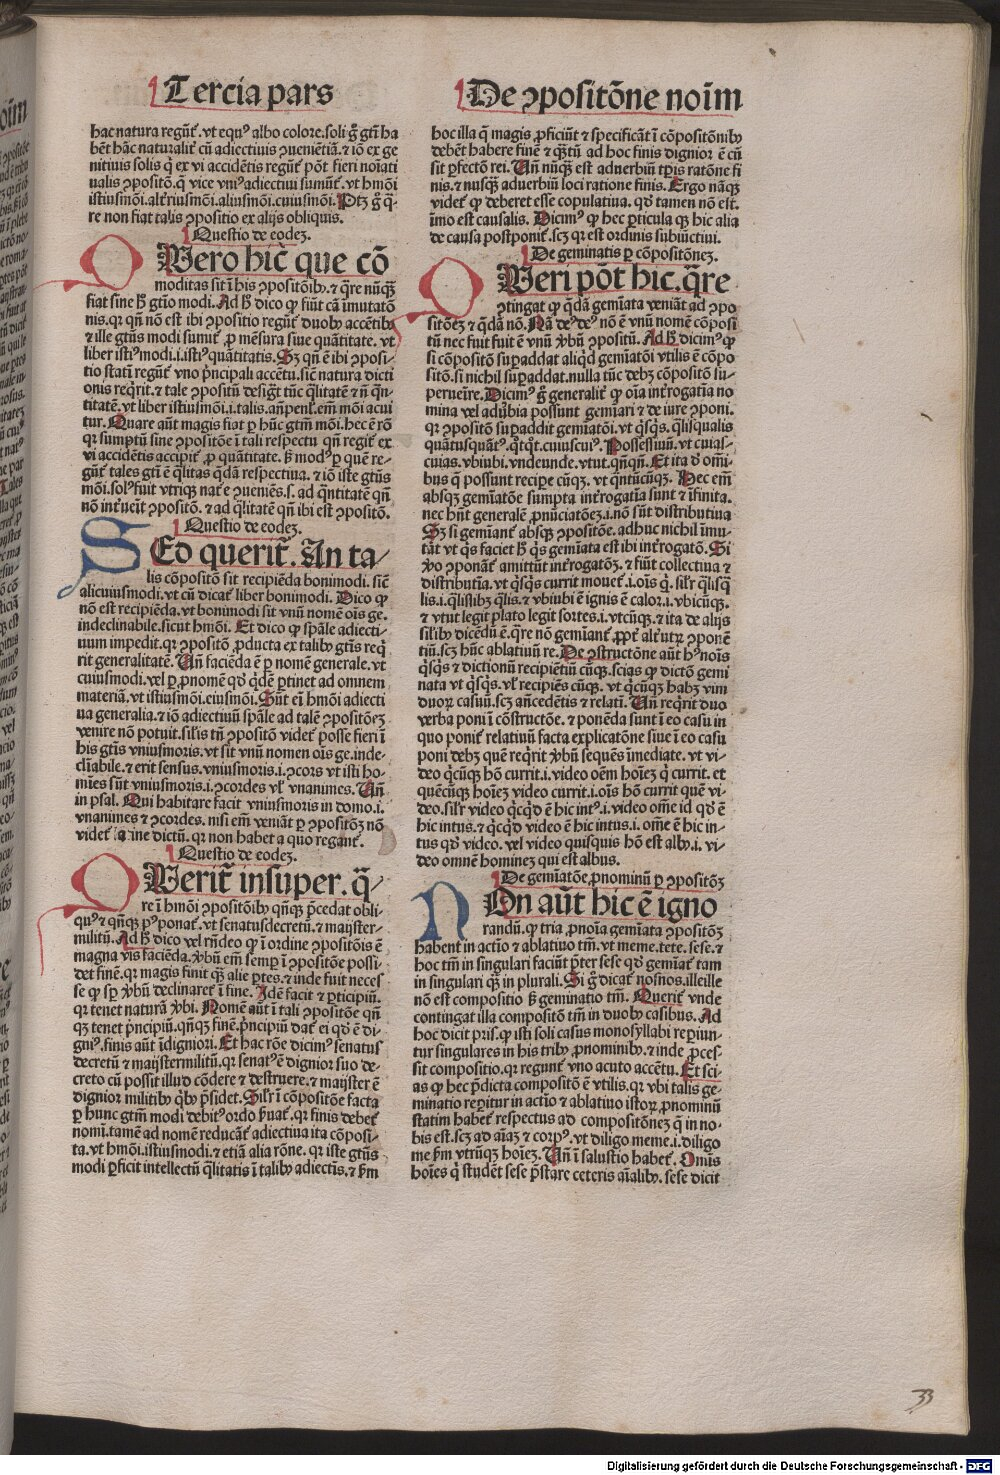 Tercia pars
De ꝯpositõne noĩm
hac natura regũt̃. vt equꝰ albo colore. soli g̃ gtĩ ha
bẽt hãc naturalit̃ cũ adiectiuis ꝯueniẽtiã. ⁊ iõ ex ge
nitiuis solis q̃ ex vi accidẽtis regũt̃ põt fieri noĩati
ualis ꝯpositõ. q̃ vice vniꝰ adiectiui sumũt̃. vt hmõi
istiusmõi. alt̃riusmõi. aliusmõi. cuiusmõi. Ptꝫ g̃ q̃-
re non fiat talis ꝯpositio ex alijs obliquis.
Questio de eodeꝫ.
QVero hic̃ que cõ
moditas sit ĩ his ꝯpositõibꝫ. ⁊ q̃re nũqꝫ
fiat sine h̃ gtĩo modi. Ad h̃ dico ꝙ fiũt cã ĩmutatõ
nis. qꝛ qñ nõ est ibi ꝯpositio regũt̃ duobꝫ accẽtibꝫ
⁊ ille gtũs modi sumit̃ ꝓ mẽsura siue quãtitate. vt
liber istiꝰ modi .i. istiꝰ quãtitatis. Sꝫ qñ ẽ ibi ꝯposi-
tio statĩ regũt̃ vno p̃ncipali accẽtu. sic̃ natura dicti
onis reqͥrit. ⁊ tale ꝯpositũ desigt̃ tũc q̃litatẽ ⁊ ñ q̃n-
titatẽ. vt liber istiusmõi .i. talis. añpenl̃. em̃ mõi acui
tur. Quare aũt magis fiat ꝑ hũc gtĩm mõi. hec ẽ rõ
qꝛ sumptũ sine ꝯpositõe ĩ tali respectu qñ regit̃ ex
vi accidẽtis accipit̃ ꝓ quãtitate. ẜm modꝰ ꝑ quẽ re-
gũt̃ tales gtĩ ẽ q̃litas q̃dã respectiua. ⁊ iõ iste gtũs
mõi. solꝰ fuit vtriqꝫ nat̃e ꝯueniẽs .s. ad q̃ntitatẽ qñ
nõ int̃uẽit ꝯpositõ. ⁊ ad q̃litatẽ qñ ibi est ꝯpositõ.
Questio de eodeꝫ.
SEd querit̃. An ta-
lis cõpositõ sit recipiẽda bonimodi. sic̃
alicuiusmodi. vt cũ dicat̃ liber bonimodi. Dico ꝙ
nõ est recipiẽda. vt bonimodi sit vnũ nomẽ oĩs ge.
indeclinabile. sicut hmõi. Et dico ꝙ spãle adiecti-
uum impedit. qꝛ ꝯpositõ ꝓducta ex talibꝫ gtĩs reqͥ
rit generalitatẽ. Uñ faciẽda ẽ ꝑ nomẽ generale. vt
cuiusmodi. vel ꝑ ꝓnomẽ qd̃ q̃dẽ ꝑtinet ad omnem
materiã. vt istiusmõi. eiusmõi. Sũt eĩ hmõi adiecti
ua generalia. ⁊ iõ adiectiuũ spãle ad talẽ ꝯpositõeꝫ
venire nõ potuit. sil̃is tñ ꝯpositõ videt̃ posse fieri ĩ
his gtĩs vniusmoris. vt sit vnũ nomen oĩs ge. inde-
clĩabile. ⁊ erit sensus. vniusmoris .i. ꝯcors vt isti ho-
mĩes sũt vniusmoris .i. ꝯcordes vl̃ vnanimes. Uñ
in psal. Qui habitare facit vniusmoris in domo .i.
vnanimes ⁊ ꝯcordes. nisi em̃ veniãt ꝑ ꝯpositõꝫ nõ
videt̃ ine dictũ. qꝛ non habet a quo regant̃.
Questio de eodeꝫ.
QVerit̃ insuper. q̃-
re ĩ hmõi ꝯpositõibꝫ qñqꝫ p̃cedat obli-
quꝰ ⁊ qñqꝫ pꝰponat̃. vt senatusdecretũ. ⁊ maijster-
militũ. Ad h̃ dico vel rñdeo ꝙ ĩ ordine ꝯpositõis ẽ
magna vis faciẽda. ꝟbũ em̃ semꝑ ĩ ꝯpositõe possi-
det finẽ. qꝛ magis finit qꝫ alie ꝑtes. ⁊ inde fuit necess
se ꝙ sꝑ ꝟbũ declinaret̃ ĩ fine. Idẽ facit ⁊ ꝑticipiũ.
qꝛ tenet naturã ꝟbi. Nomẽ aũt ĩ tali ꝯpositõe qñ
qꝫ tenet p̃ncipiũ. qñqꝫ finẽ. p̃ncipiũ dat̃ ei qd̃ ẽ di-
gniꝰ. finis aũt ĩdigniori. Et hac rõe dicimꝰ senatus
decretũ ⁊ maijstermilitũ. qꝛ senatꝰ ẽ dignior suo de-
creto cũ possit illud cõdere ⁊ destruere. ⁊ maijster ẽ
dignior militibꝫ qͥbꝫ p̃sidet. Sil̃r ĩ cõpositõe facta
ꝑ hunc gtĩm modi debitꝰ ordo ẜuat̃. qꝛ finis debet̃
nomĩ. tamẽ ad nomẽ reducãt̃ adiectiua ita cõposi-
ta. vt hmõi. istiusmodi. ⁊ etiã alia rõne. qꝛ iste gtũs
modi ꝑficit intellectũ q̃litatis ĩ talibꝫ adiectĩs. ⁊ ẜm
hoc illa q̃ magis ꝓficiũt ⁊ specificãt ĩ cõpositõnibꝫ
debẽt habere finẽ ⁊ qꝫtũ ad hoc finis dignior ẽ cũ
sit ꝑfectõ rei. Uñ nũqꝫ est aduerbiũ tꝑis ratõne fi
nis. ⁊ nusqꝫ aduerbiũ loci ratione finis. Ergo nãqꝫ
videt̃ ꝙ deberet esse copulatiua. qd̃ tamen nõ est.
ĩmo est causalis. Dicimꝰ ꝙ hec ꝑticula qꝫ hic alia
de causa postponit̃. scꝫ qꝛ est ordinis subiũctiui.
De geminatis ꝑ cõpositõneꝫ.
QVeri põt hic. q̃re
ꝯtingat ꝙ q̃dã gemĩata veniãt ad ꝯpo
sitõeꝫ ⁊ q̃dã nõ. Nã deꝰdeꝰ nõ ẽ vnũ nomẽ cõposi
tũ nec fuit fuit ẽ vnũ ꝟbũ ꝯpositũ. Ad h̃ dicimꝰ ꝙ
si cõpositõ suꝑaddat aliqͥd gemĩatõi vtilis ẽ cõpo
sitõ. si nichil suꝑaddat. nulla tũc debꝫ cõpositõ su-
peruẽire. Dicimꝰ g̃ generalit̃ ꝙ oĩa int̃rogatĩa no
mina vel adũbia possunt gemĩari ⁊ de iure ꝯponi.
qꝛ ꝯpositõ suꝑaddit gemĩatõi. vt qͥsqͥs. q̃lisqualis
quãtusquãtꝰ. qͦtqͦt. cuiuscuiꝰ. Possessiuũ. vt cuias-
cuias. vbiubi. vndeunde. vtut. qñqñ. Et ita ð om̃i-
bus q̃ possunt reciꝑe cũqꝫ. vt qͣntũcũqꝫ. Hec em̃
absqꝫ gemĩatõe sumpta int̃rogatĩa sunt ⁊ ĩfinita.
nec hñt generalẽ ꝓnũciatõeꝫ .i. nõ sũt distributiua
Sꝫ si gemĩant̃ absqꝫ ꝯpositõe. adhuc nichil ĩmu-
tãt̃ vt qͥs faciet h̃ qͥs gemĩata est ibi int̃rogatõ. Si
ꝟo ꝯponãt̃ amittũt int̃rogatõꝫ. ⁊ fiũt collectiua ⁊
distributĩa. vt qͥsqͥs currit mouet̃ .i. oĩs q̃. sil̃r q̃lisq̃
lis .i. q̃lislibꝫ q̃lis. ⁊ vbiubi ẽ ignis ẽ calor .i. vbicũqꝫ.
⁊ vtut legit plato legit sortes .i. vtcũqꝫ. ⁊ ita de alijs
sil̃ibꝫ dicẽdũ ẽ. q̃re nõ gemĩant̃ ꝓpt̃ alt̃utrꝫ ꝯponẽ
tiũ. scꝫ hũc ablatiuũ re. De ꝯstructõne aũt hꝰ noĩs
qͥsqͥs ⁊ dictionũ recipiẽtiũ cũqꝫ. scias ꝙ dictõ gemi
nata vt qͥsqͥs. vl̃ recipiẽs cũqꝫ. vt qͥcũqꝫ habꝫ vim
duoꝝ casuũ. scꝫ añcedẽtis ⁊ relatĩ. Uñ reqͥrit duo
verba poni ĩ cõstructõe. ⁊ ponẽda sunt ĩ eo casu in
quo ponit̃ relatiuũ facta explicatõne siue ĩ eo casu
poni debꝫ quẽ reqͥrit ꝟbũ sequẽs ĩmediate. vt vi-
deo qͥcũqꝫ hõ currit .i. video oẽm hoĩeꝫ q̃ currit. et
quẽcũqꝫ hoĩeꝫ video currit .i. oĩs hõ currit quẽ vi-
deo. sil̃r video qͥcqͥd ẽ hic intꝰ .i. video om̃e id qd̃ ẽ
hic intus. ⁊ qͥcqͥd video ẽ hic intus .i. om̃e ẽ hic in-
tus qd̃ video. vel video quisquis hõ est albꝫ .i. vi-
deo omnẽ homineꝫ qui est albus.
De gemĩatõe ꝓnominũ ꝑ ꝯpositõꝫ
NOn aũt hic ẽ igno
randũ. ꝙ tria ꝓnoĩa gemĩata ꝯpositõꝫ
habent in actĩo ⁊ ablatiuo tm̃. vt meme. tete. sese. ⁊
hoc tm̃ in singulari faciũt p̃ter sese qd̃ gemĩat̃ tam
in singulari qꝫ in plurali. Si g̃ dicat̃ nosnos. illeille
nõ est compositio ẜ geminatio tm̃. Querit̃ vnde
contingat illa compositõ tm̃ in duobꝫ casibus. Ad
hoc dicit pris. ꝙ isti soli casus monosyllabi reꝑiun-
tur singulares in his tribꝫ ꝓnominibꝫ. ⁊ inde ꝓces-
sit compositio. qꝛ regunt̃ vno acuto accẽtu. Et sci-
as ꝙ hec p̃dicta compositõ ẽ vtilis. qꝛ vbi talis ge-
minatio reꝑitur in actĩo ⁊ ablatiuo istoꝝ ꝓnominũ
statim habet̃ respectus ad compositõneꝫ q̃ in no-
bis est. scꝫ ad aĩaꝫ ⁊ corpꝰ. vt diligo meme .i. diligo
me ẜm vtrũqꝫ hoĩeꝫ. Uñ ĩ salustio habet̃. Om̃is
hoĩes q̃ studẽt sese p̃stare ceteris aĩalibꝫ. sese dicit
33
Digitalisierung gefördert durch die Deutsche Forschungsgemeinschaft - DFG